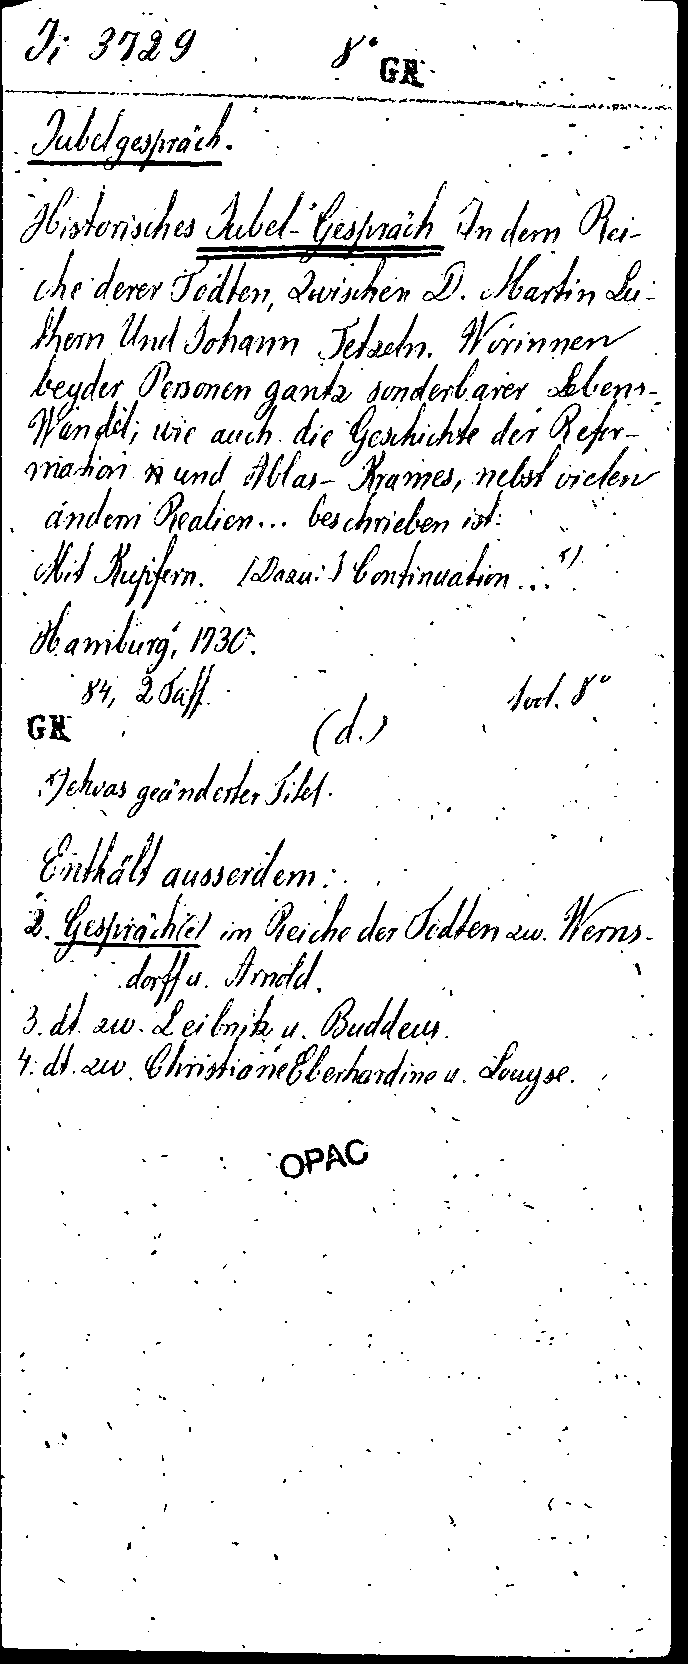 Ji 3729 8° GR
Jubelgespräch.
Historisches Jubel-Gespräch In dem Rei-
che derer Todten, zwischen D. Martin Lu-
thern Und Johann Tetzeln. Worinnen
beyder Personen gantz sonderbarer Lebens-
Wandel; wie auch die Geschichte der Refor-
mation und Ablas-Krames, nebst vielen
andern Realien... beschrieben ist.
Mit Kupfern. [Dazu:] Continuation...x)
Hamburg, 1730.
84, 2 Taff. 8°
GR (d.)
x) etwas geänderter Titel.
Enthält ausserdem:
2. Gespräch(e) im Reiche der Todten zw. Werns-
dorff u. Arnold.
3. dt. zw. Leibnitz u. Buddeus.
4. dt. zw. Christiane Eberhardine u. Louyse.
OPAC